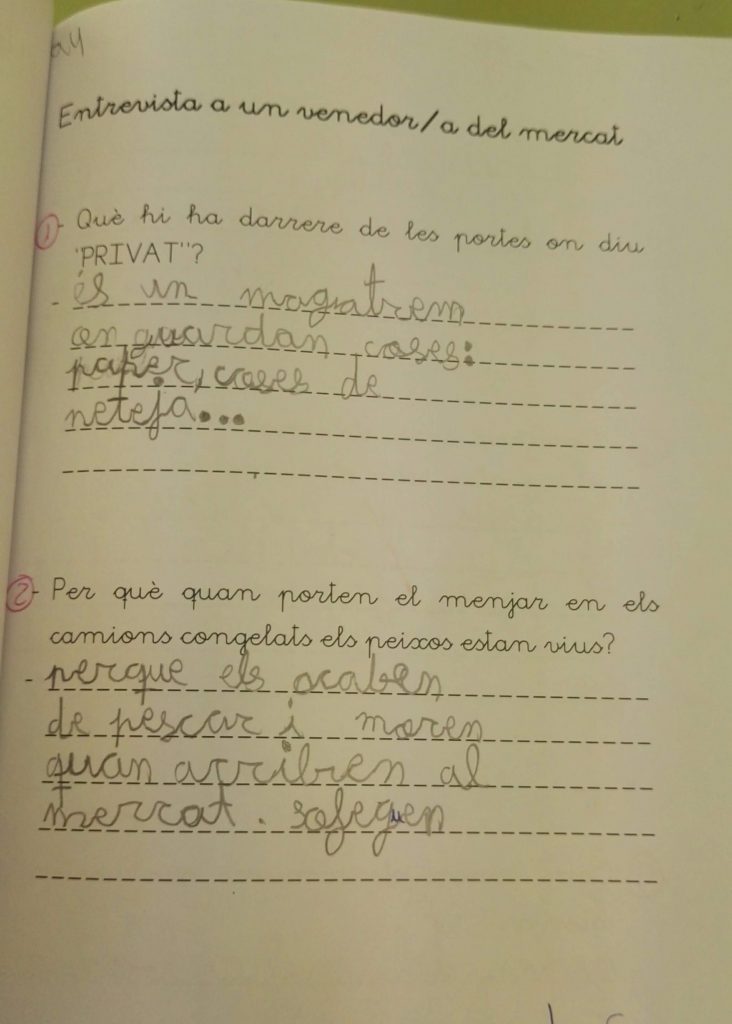 Entrevista a un venedor/a del mercat
1- Què hi ha darrere de les portes on diu
'PRIVAT"?
- és un magatrem
on guardan coses:
paper, coses de
neteja...
2- Per què quan porten el menjar en els
camions congelats els peixos estan vius?
- perque els acaben
de pescar i moren
quan arriben al
mercat. sofeguen